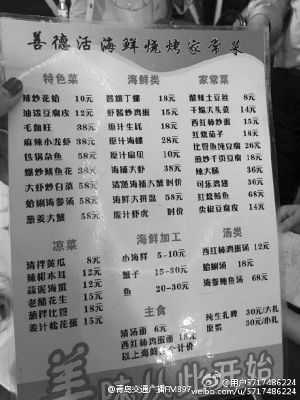 善德活海鲜烧烤家常菜
特色菜
辣炒花蛤 10元
油泼豆腐皮 12元
毛血旺 38元
麻辣小龙虾 38元
铁锅杂鱼 58元
爆炒鱿鱼花 38元
大虾炒白菜 58元
蛤蜊海参汤 58元
葱姜大蟹 58元
海鲜类
酱爆丁螺 18元
虾酱炒鸡蛋 15元
原汁生蚝 18元
原汁海螺 28元
原汁扇贝 10元
海捕大虾 38元
清蒸海捕大蟹 时价
海鲜大拼盘 58元
原汁虾虎 时价
家常菜
酸辣土豆丝 8元
干煸大头菜 14元
西红柿炒蛋 15元
红烧茄子 18元
比管鱼炖豆腐 26元
煎炒千页豆腐 18元
辣大肠 36元
可乐鸡翅 36元
红烧鲅鱼 68元
尖椒豆腐皮 14元
凉菜
清拌黄瓜 8元
辣根木耳 12元
蒜泥海蜇 12元
老醋花生 15元
葱拌比管 18元
姜汁松花蛋 15元
海鲜加工
小海鲜 5-10元
蟹子 15-30元
鱼 20-30元
主食
清汤面 6元
西红柿鸡蛋面 12元
以上海鲜 个计价
汤类
西红柿鸡蛋汤 12元
蛤蜊汤 18元
海参鲍鱼汤 68元
纯生扎啤 30元/大扎
原浆 30元/小扎
美 从此开始
@青岛交通广播FM897
@用户5717486224
weibo.com/5717486224